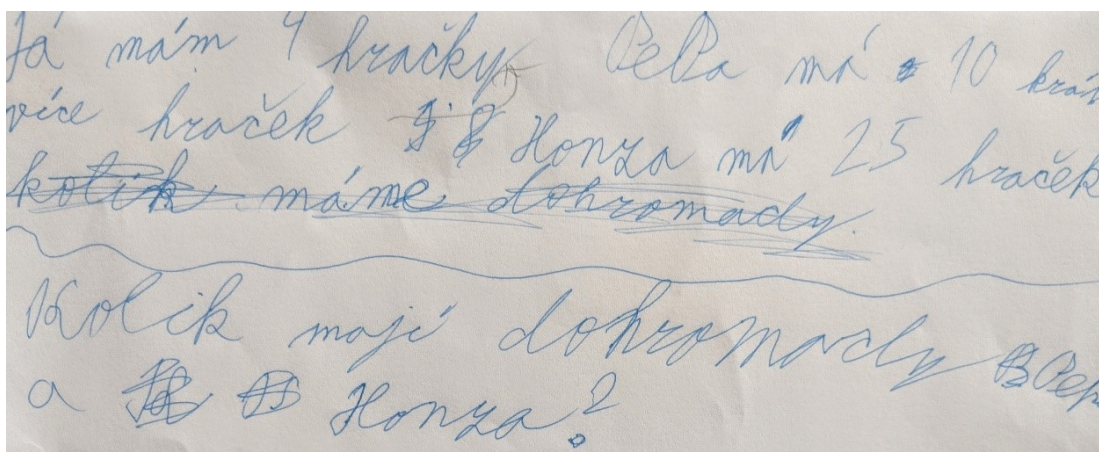 Já mám 4 hračky PePa má 10 krát
více hraček Honza má 25 hraček
kolik máme dohromady.
Kolik mají dohromady Pepa
a Honza?